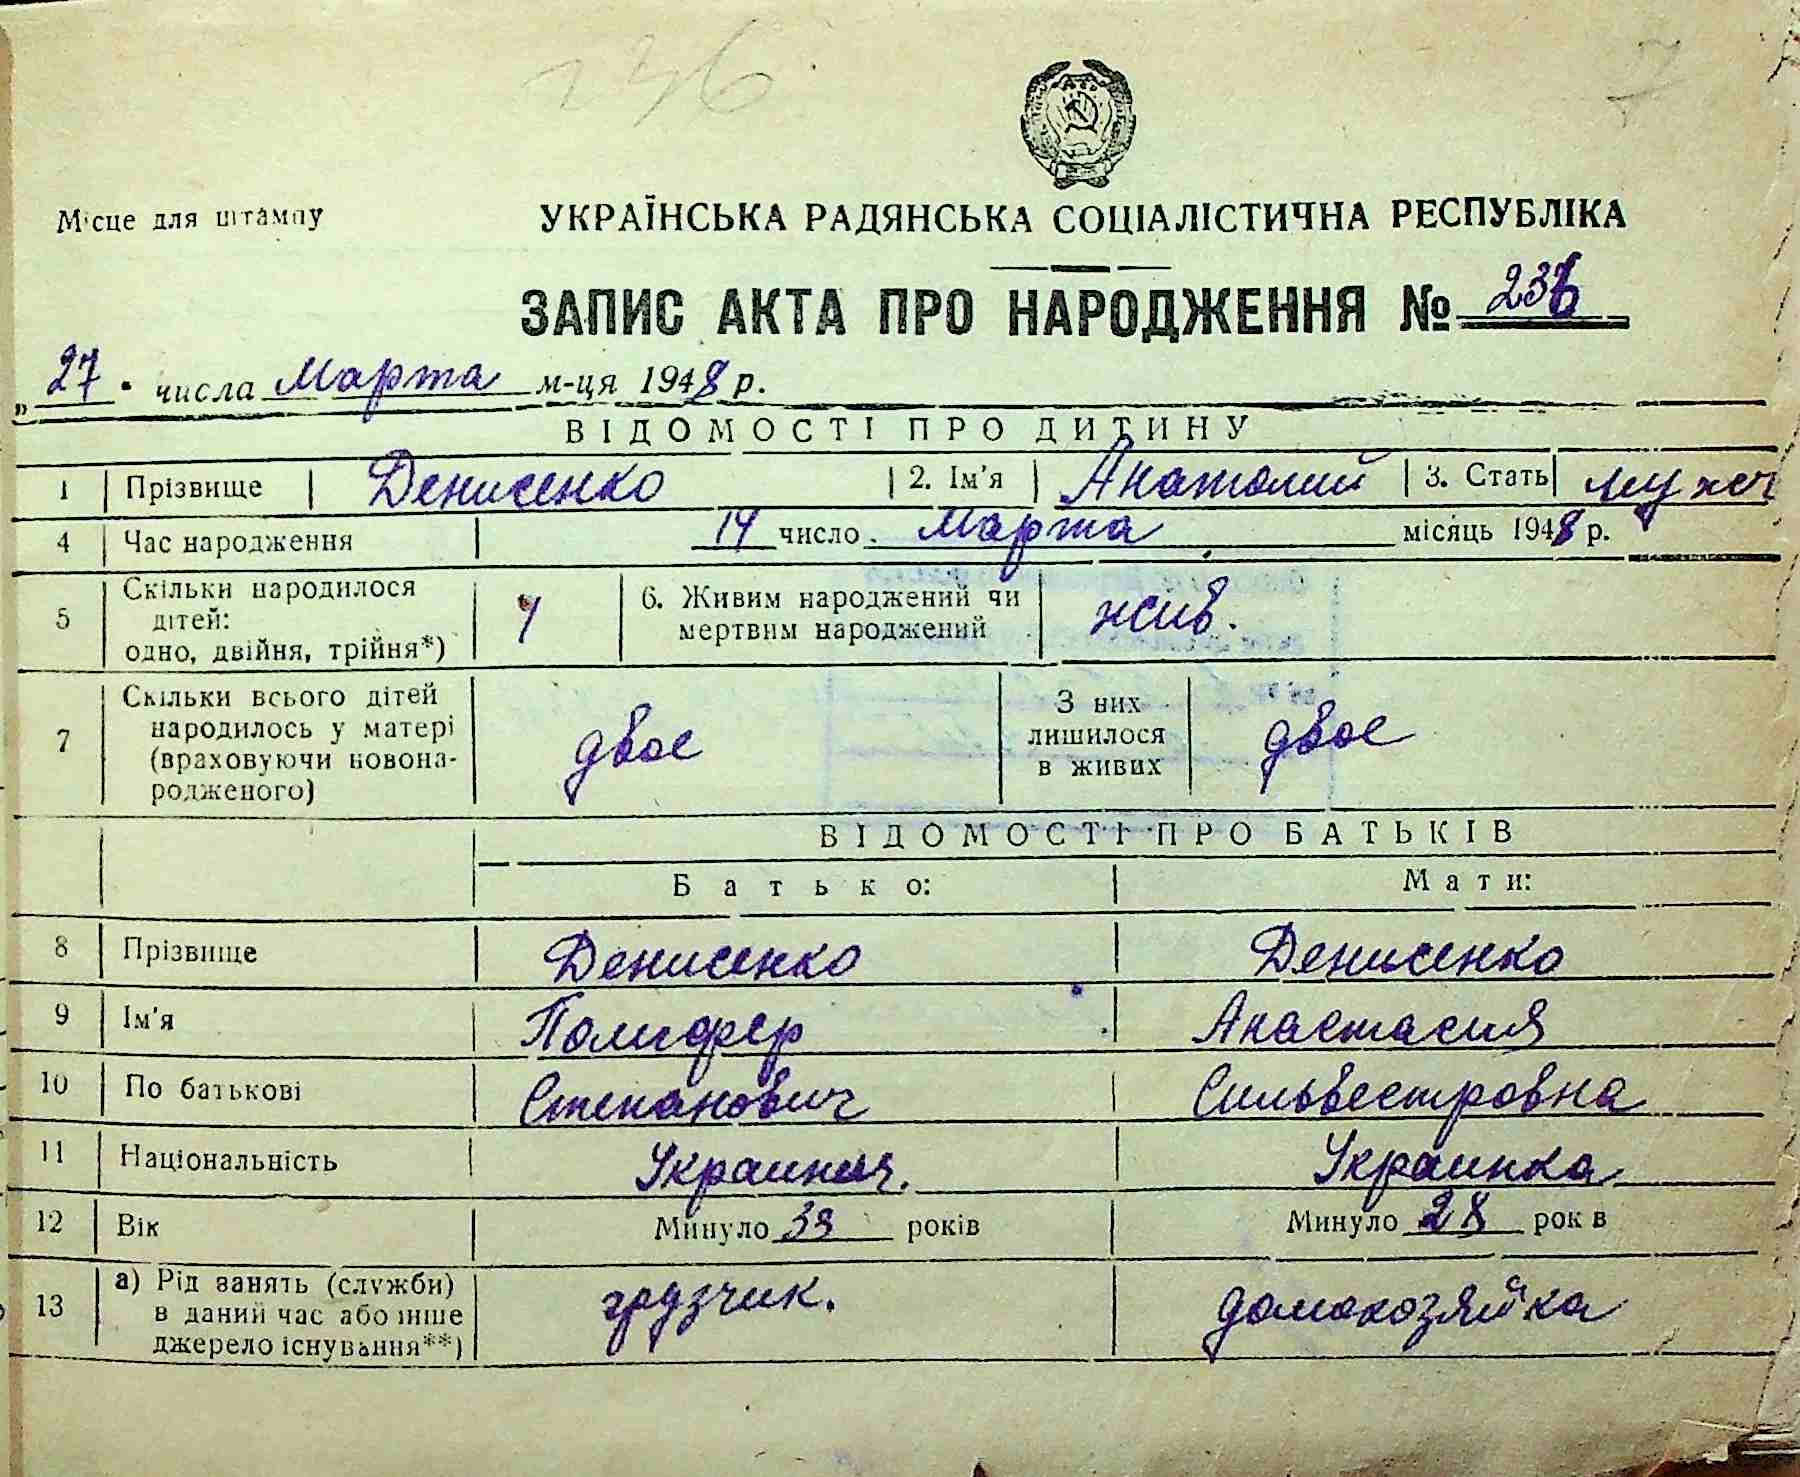 236
7
Місце для штампу
УКРАЇНСЬКА РАДЯНСЬКА СОЦІАЛІСТИЧНА РЕСПУБЛІКА
ЗАПИС АКТА ПРО НАРОДЖЕННЯ № 236
„27" числа Марта м-ця 1948 р.
ВІДОМОСТІ ПРО ДИТИНУ
1 Прізвище Денисенко 2. Ім'я Анатолий 3. Стать мужч
4 Час народження 14 число Марта місяць 1948 р.
5 Скільки народилося дітей: одно, двійня, трійня*) 1 6. Живим народжений чи мертвим народжений жив.
7 Скільки всього дітей народилось у матері (враховуючи новонародженого) двое З них лишилося в живих двое
ВІДОМОСТІ ПРО БАТЬКІВ
Батько: Мати:
8 Прізвище Денисенко Денисенко
9 Ім'я Полифер Анастасия
10 По батькові Степанович Сильвестровна
11 Національність Украинец. Украинка
12 Вік Минуло 39 років Минуло 28 років
13 а) Рід занять (служби) в даний час або інше джерело існування**) грузчик. домохозяйка